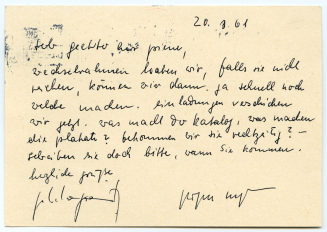 20. 9. 61
sehr geehrter herr prime,
wechselrahmen haben wir, falls sie nicht
reichen, können wir dann ja schnell noch
welche machen. einladungen verschicken
wir jetzt. was macht der katalog, was machen
die plakate? bekommen wir sie rechtzeitig? –
schreiben sie doch bitte, wann sie kommen.
herzliche grüße